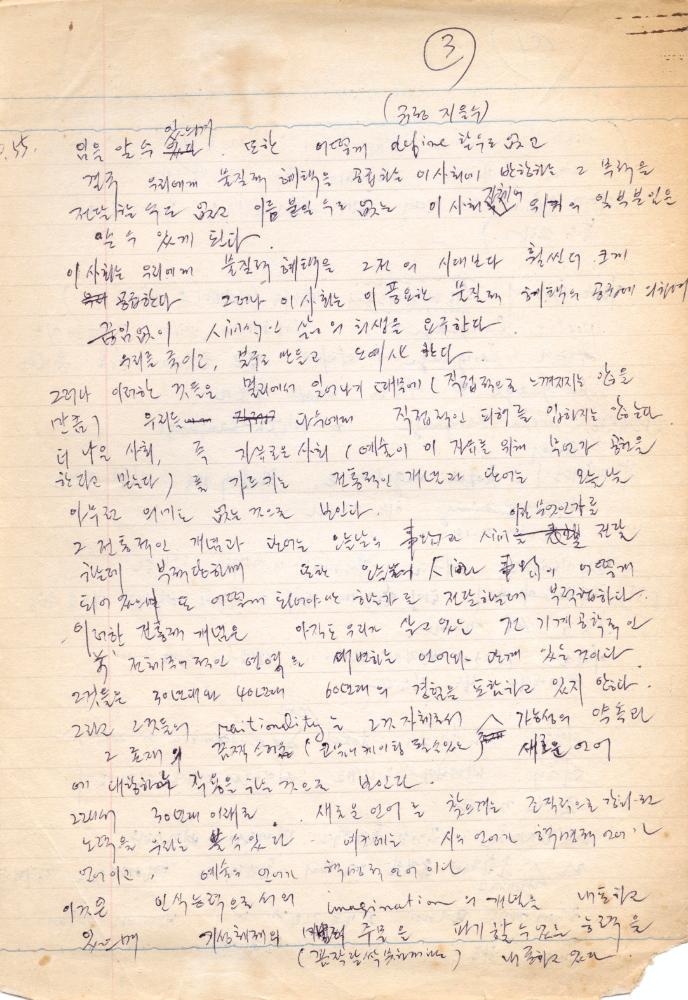 3
p.55.
있으며
임을 알 수 또한 어떻게 define 할 수도 없고
결국 우리에게 물질적 혜택을 공급하는 이 사회에 반항하는 그 폭력을
전달하는 수도 없고 이름 붙일 수도 없는 이 사회 전체의 위기의 일부분임은
알 수 있게 된다.
이 사회는 우리에게 물질적 혜택을 그전의 시대보다 훨씬 더 크게
공급한다 그러나 이 사회는 이 풍요한 물질적 혜택의 공급에 의하여
끊임없이 인 삶의 희생을 요구한다.
우리를 죽이고, 불구로 만들고 노예시 한다.
그러나 이러한 것들은 멀리에서 일어나기 때문에 (직접적으로 느껴지지는 않을
만큼) 우리들 다수에게 직접적인 피해를 입히지는 않는다
더 나은 사회, 즉 자유로운 사회 (예술이 이 자유를 위해 무언가 공헌을
한다고 믿는다) 를 가르키는 전통적인 개념과 단어는 오늘날
아무런 의미도 없는 것으로 보인다.
이란 무엇인가를
그 전통적인 개념과 단어는 오늘날의 事物과 人間 전달
하는데 부적당하며 또한 오늘날의 人間과 事物이 어떻게
되어 있으며 또 어떻게 되어야만 하는가를 전달하는데 부적합하다.
이러한 전통적 개념은 아직도 우리가 살고 있는 전 기계공학적인
前 전체주의적인 영역을 대변하는 언어와 관계 있는 것이다
그것들은 30년대와 40년대 60년대의 결합을 포함하고 있지 않다.
그리고 그것들의 raitionality는 그것 자체로서 가능성의 약속과
그 표재의 끔찍스러운 (코뮤니케이팅 될 수 있는) 새로운 언어
에 대항하여 작용을 하는 것으로 보인다.
그래서 30년대 이래로 새로운 언어를 찾으려는 조직적으로
노력을 우리는 볼 수 있다 시의 언어가 혁명적 언어가
언어이고, 예술의 언어가 혁명적 언어이다
이것은 인식능력으로서의 imagination의 개념을 내포하고
있으며 기성체제의 주문을 파기할 수 있는 능력을
(꼼짝달싹 못하게 하는) 내포하고 있다.